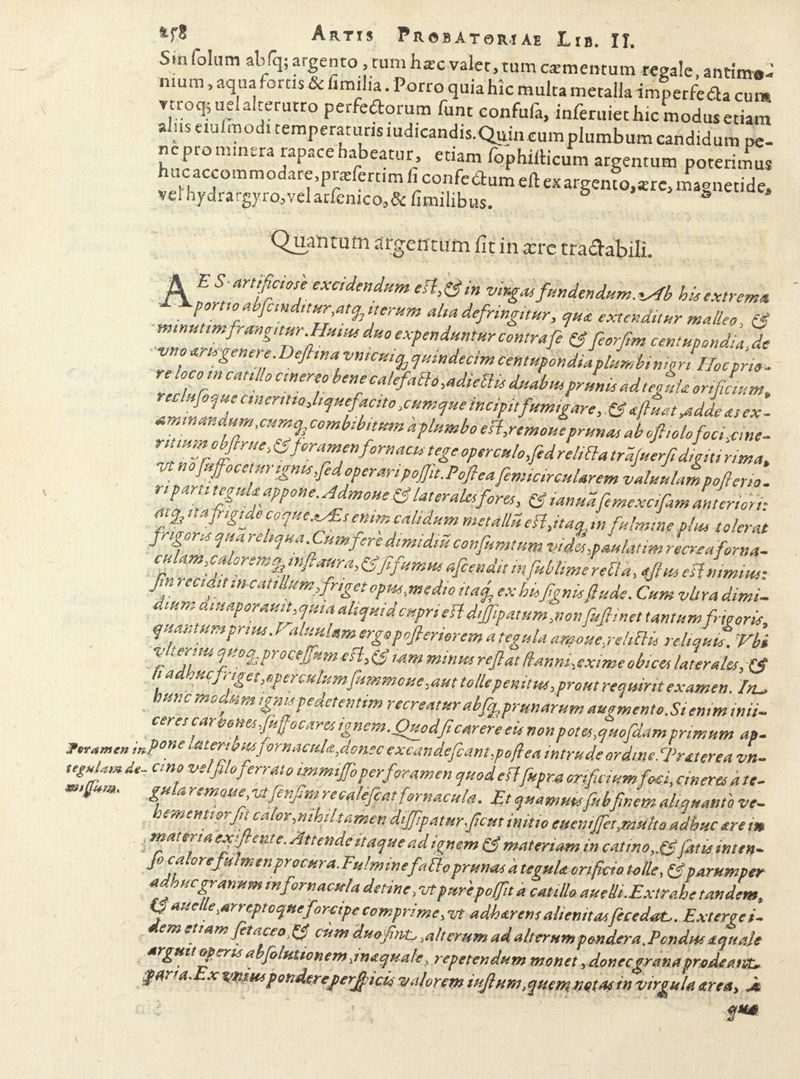 258 ARTIS PROBATORIAE LIB. II.
Sin solum absq; argento, tum hæc valet, tum cæmentum regale, antimo-
nium, aqua fortis & similia. Porro quia hîc multa metalla imperfecta cum
vtroq; uel alterutro perfectorum sunt confusa, inseruiet hic modus etiam
aliis eiusmodi temperaturis iudicandis. Quin cum plumbum candidum pe-
ne pro minera rapace habeatur, etiam sophisticum argentum poterimus
huc accommodare, præsertim si confectum est ex argento, ære, magnetide,
vel hydrargyro, vel arsenico, & similibus.
Quantum argentum sit in ære tractabili.
AES artificiosè excidendum est, & in virgas fundendum. Ab his extrema
portio abscinditur, atq; iterum alia defringitur, quæ extenditur malleo, &
minutim frangitur. Huius duo expenduntur contra se & seorsim centupondia, de
vno æris genere. Destina vnicuiq; quindecim centupondia plumbi nigri Hoc prio-
re loco in catillo cinereo bene calefacto, adiectis duabus prunis ad tegulæ orificium,
reclusoque cineritio, liquefacito, cumque incipit fumigare, & æstuat, adde æs ex-
aminandum, cumq; combibitum à plumbo est, remoue prunas ab ostiolo foci, cine-
ritium obstrue, & foramen fornacis tege operculo, sed relicta trāsuersi digiti rima,
vt nō suffocetur ignis, sed operari possit. Postea semicircularem valuulam posterio-
ri parti tegulæ appone. Admoue & laterales fores, & ianuā semexcisam anteriori:
atq; ita frigidè coque. Æs enim calidum metallū est, itaq; in fulmine plus tolerat
frigoris quā reliqua. Cum fere dimidiū consumtum vides, paulatim recrea forna-
culam, caloremq; instaura, & si fumus ascendit in sublime recta, æstus est nimius:
sin recidit in catillum, friget opus, medio itaq; ex his signis stude. Cum vltra dimi-
dium diuaporauit, quia aliquid cupri est dissipatum, non sustinet tantum frigoris,
quantum prius. Valuulam ergo posteriorem a tegula amoue, relictis reliquis. Vbi
vlterius quoq; processum est, & iam minus restat stanni, exime obices laterales, &
si adhuc friget, operculum summoue, aut tolle penitus, prout requirit examen. In
hunc modum ignis pedetentim recreatur absq; prunarum augmento. Si enim inii-
ceres carbones, suffocares ignem. Quod si carere eis non potes, quosdam primum ap-
Foramen in
tegulam de-
missum.
pone lateribus fornaculæ, donec excandescant, postea intrude ordine. Præterea vn-
cino vel filo ferrato immisso per foramen quod est supra orificium foci, cineres à te-
gula remoue, vt sensim recalescat fornacula. Et quamuis sub finem aliquantò ve-
hementior sit calor, nihil tamen dissipatur, sicut initio euenisset, multo adhuc ære in
materia existente. Attende itaque ad ignem & materiam in catino, & satis inten-
so calore fulmen procura. Fulmine facto prunas à tegulæ orificio tolle, & parumper
adhuc granum in fornacula detine, vt purè possit à catillo auelli. Extrahe tandem,
& auelle, arreptoque forcipe comprime, vt adhærens alienitas secedat. Exterge i-
dem etiam setaceo, & cùm duo sint, alterum ad alterum pondera. Pondus æquale
arguit operis absolutionem, inæquale, repetendum monet, donec grana prodeant
paria. Ex vnius pondere perspicis valorem iustum, quem notas in virgula ærea, à
qua